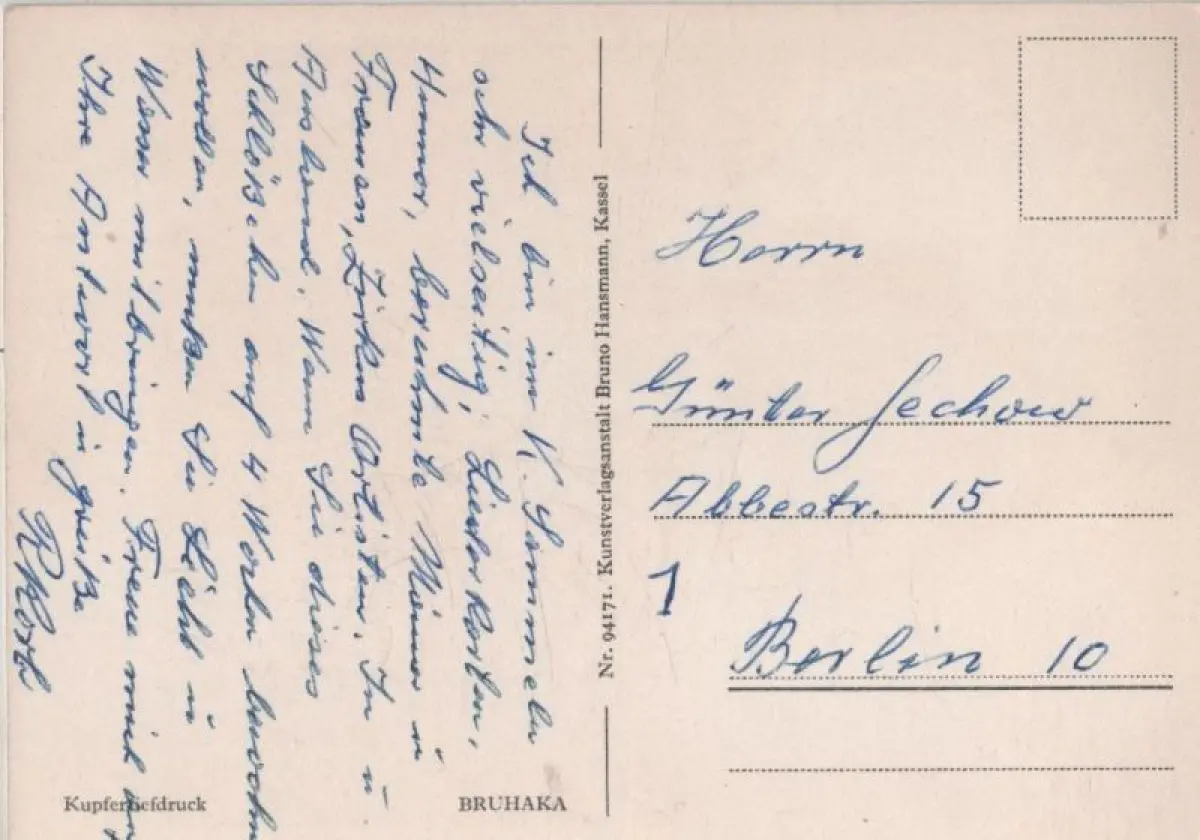 Ich bin im K. Sammeln
sehr vielseitig; Liederkarten,
Humor, berühmte Männer u
Frauen, Zirkus Artisten. In u
Ausland. Wenn Sie dieses
Schlößchen auf 4 Worten
wollen, müßen Sie Licht u
Wasser mitbringen. Freue mich
Ihre Antwort u grüße
Nr. 94171. Kunstverlagsanstalt Bruno Hansmann, Kassel
Herrn
Günter Jechow
Abbestr. 15
1
Berlin 10
Kupfertiefdruck
BRUHAKA